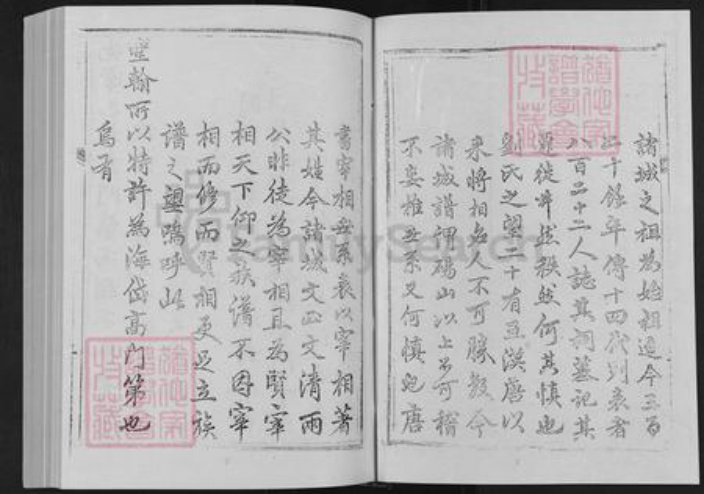 諸城之祖為始祖迄今三百
二十餘年傳十四代列表者
八百二十二人誌其祠墓記其
遷徙井然秩然何其慎也
劉氏之望二十有五漢唐以
來將相名人不可勝數今
諸城譜謂碭山以上不可稽
不妄推世系又何慎也唐
書宰相世系表以宰相著
其姓今諸城文正文清兩
公非徒為宰相且為賢宰
相天下仰之族譜不因宰
相而修而賢相更足立族
譜之望嗚呼此
聖翰所以特許為海岱高門第也
烏有
FamilySearch